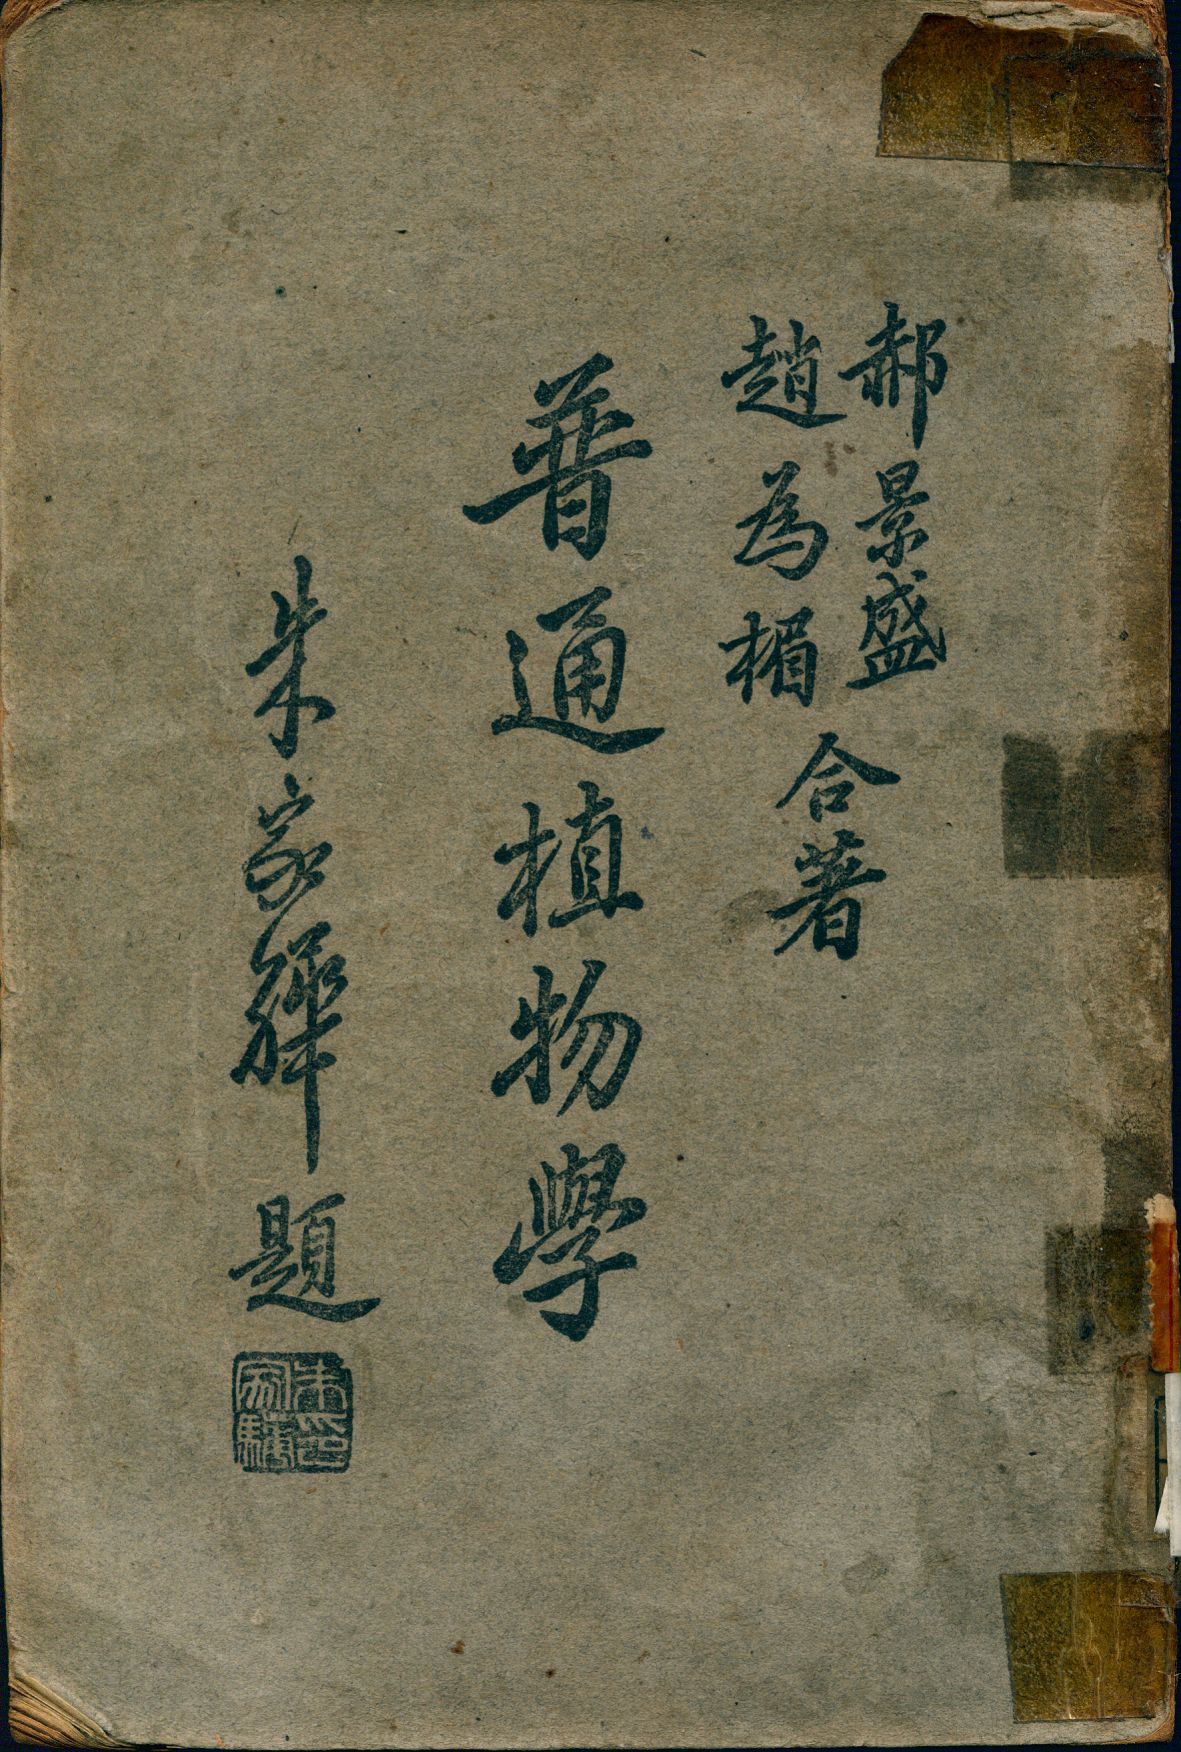 郝景盛
趙為楣
合著
普通植物學
朱家驊題
朱家驊印